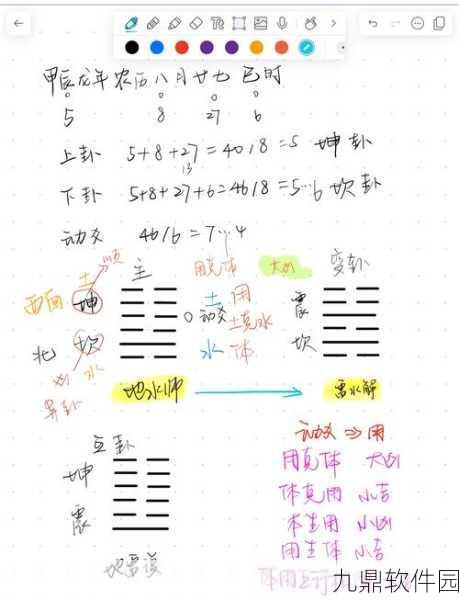 甲辰龙年 农历八月廿七 巳时
5 8 27 6
上卦 5+8+27=40/8=5 坤卦
13
下卦 5+8+27+6=46/8=5…6 坎卦
动爻 46/6=7…4
主 用克体 大凶 变卦
土 顺
西南 坤 土 用 震
动爻 土克水
北 坎 水 体 坎
凶 水
地水师 雷水解
互卦
坤
震
地雷复
动爻 ⇒ 用
用克体 大凶
体克用 小吉
体生用 小凶
用生体 小吉
体用五行
九鼎软件园